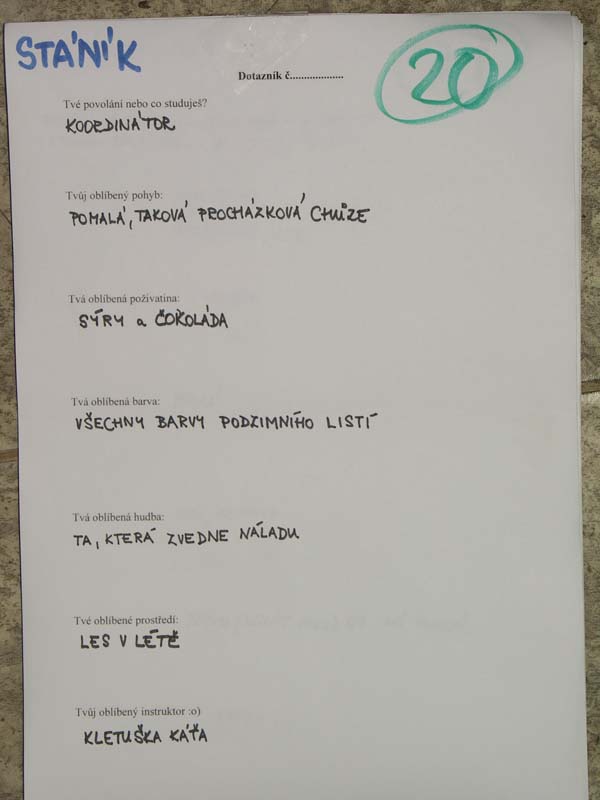 STÁNÍK
20
Dotazník č...................
Tvé povolání nebo co studuješ?
KOORDINÁTOR
Tvůj oblíbený pohyb:
POMALÁ, TAKOVÁ PROCHÁZKOVÁ CHŮZE
Tvá oblíbená poživatina:
SÝRY a ČOKOLÁDA
Tvá oblíbená barva:
VŠECHNY BARVY PODZIMNÍHO LISTÍ
Tvá oblíbená hudba:
TA, KTERÁ ZVEDNE NÁLADU
Tvé oblíbené prostředí:
LES V LÉTĚ
Tvůj oblíbený instruktor :o)
KLETUŠKA KÁŤA